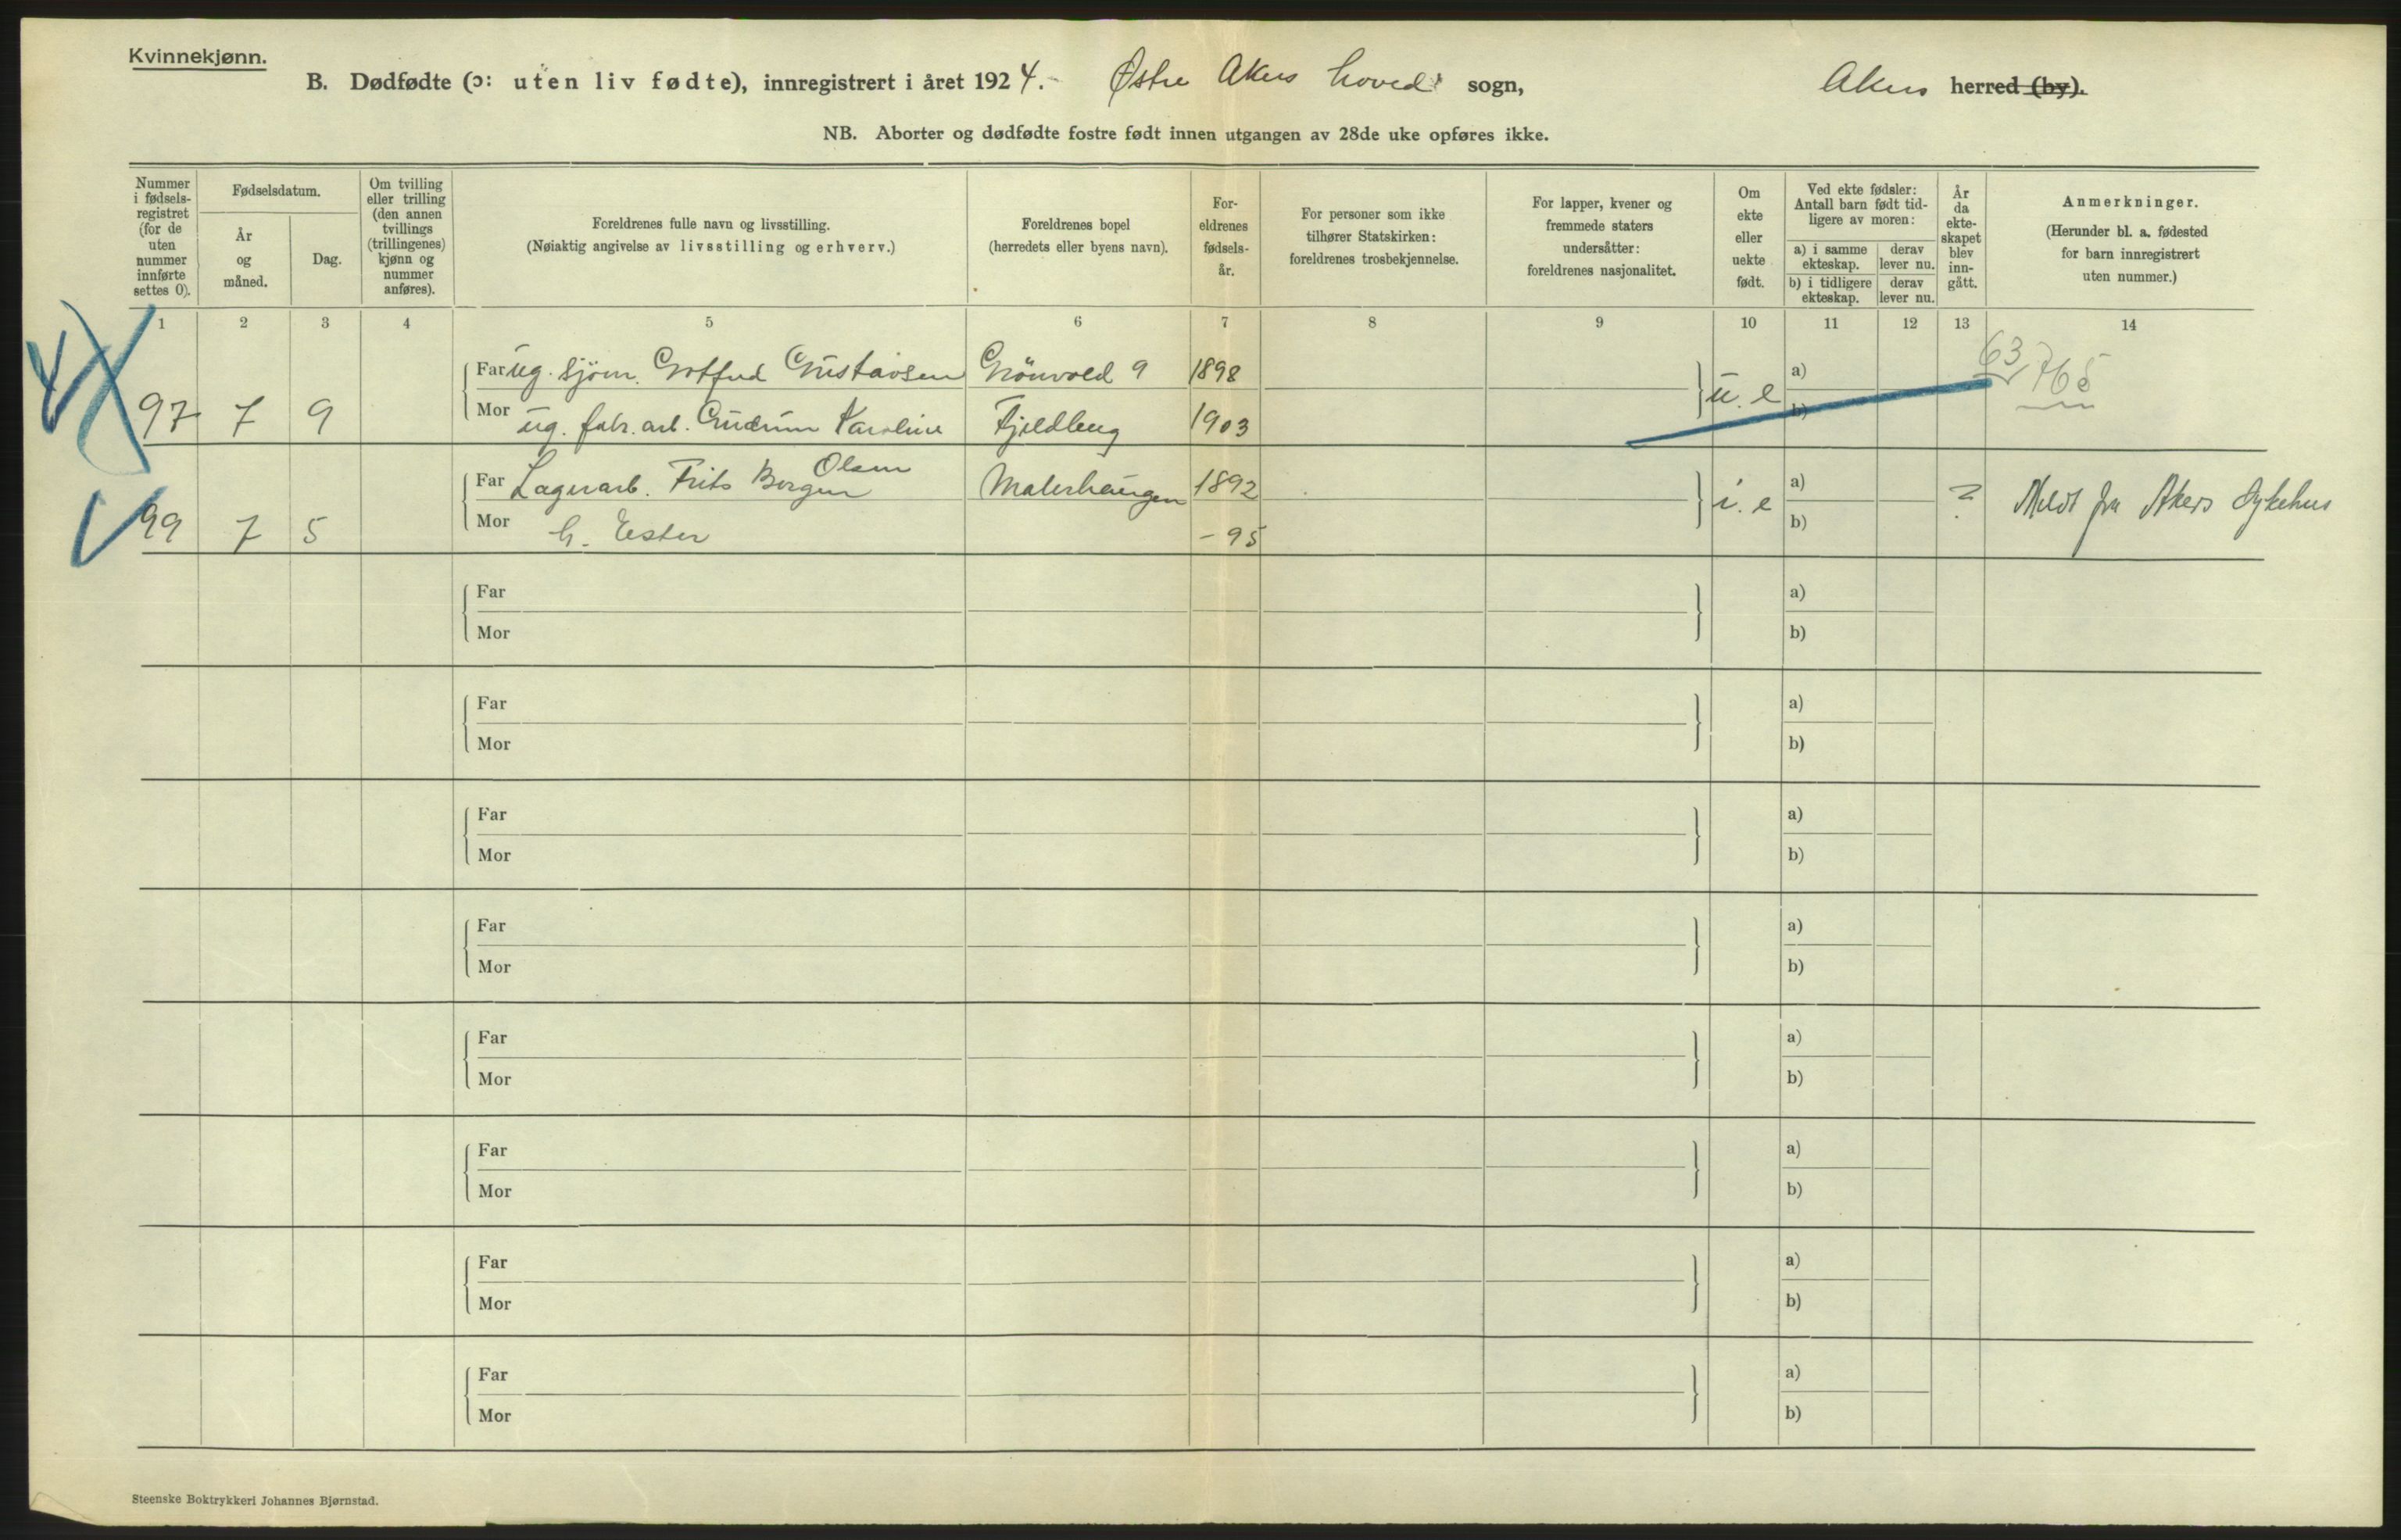 Kvinnekjønn.
B. Dødfødte (ɔ: uten liv fødte), innregistrert i året 1924. Østre Akers hoved sogn, Akers herred (by).
NB. Aborter og dødfødte fostre født innen utgangen av 28de uke opføres ikke.
Nummer i fødsels-registret (for de uten nummer innførte settes 0).
Fødselsdatum.
År og måned.
Dag.
Om tvilling eller trilling (den annen tvillings (trillingenes) kjønn og nummer anføres).
Foreldrenes fulle navn og livsstilling.
(Nøiaktig angivelse av livsstilling og erhverv.)
Foreldrenes bopel
(herredets eller byens navn).
For-eldrenes fødsels-år.
For personer som ikke tilhører Statskirken: foreldrenes trosbekjennelse.
For lapper, kvener og fremmede staters undersåtter: foreldrenes nasjonalitet.
Om ekte eller uekte født.
Ved ekte fødsler:
Antall barn født tid-ligere av moren:
a) i samme ekteskap.
derav lever nu.
b) i tidligere ekteskap.
derav lever nu.
År da ekte-skapet blev inn-gått.
Anmerkninger.
(Herunder bl. a. fødested for barn innregistrert uten nummer.)
1 2 3 4 5 6 7 8 9 10 11 12 13 14
Far ug. sjöm. Gotfred Gustavsen Grönvold 9 1898 a) 63 765
97 7 9 Mor ug. fabr. arb. Gudrun Karoline Fjeldberg 1903 u. e b)
Olsen
Far Lagerarb. Frits Borger Malerhaugen 1892 i. e a) ? Meldt fra Akers Sykehus
99 7 5 Mor h. Ester - 95 b)
Far a)
Mor b)
Far a)
Mor b)
Far a)
Mor b)
Far a)
Mor b)
Far a)
Mor b)
Far a)
Mor b)
Far a)
Mor b)
Far a)
Mor b)
Steenske Boktrykkeri Johannes Bjørnstad.